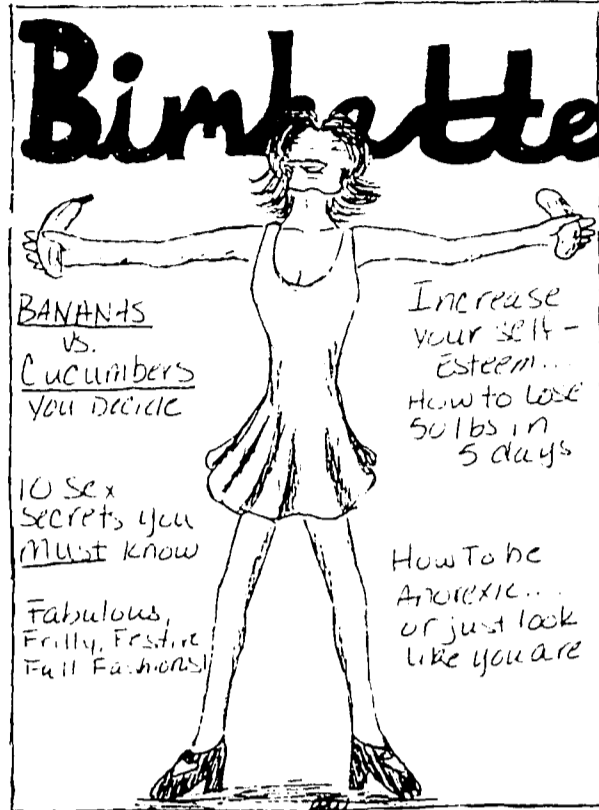 Bimbette
BANANAS
vs.
Cucumbers
You Decide
10 Sex
Secrets you
Must know
Fabulous,
Frilly, Festive
Fall Fashions!
Increase
your self-
Esteem...
How to Lose
50 lbs in
5 days
How To be
Anorexic....
or just look
like you are